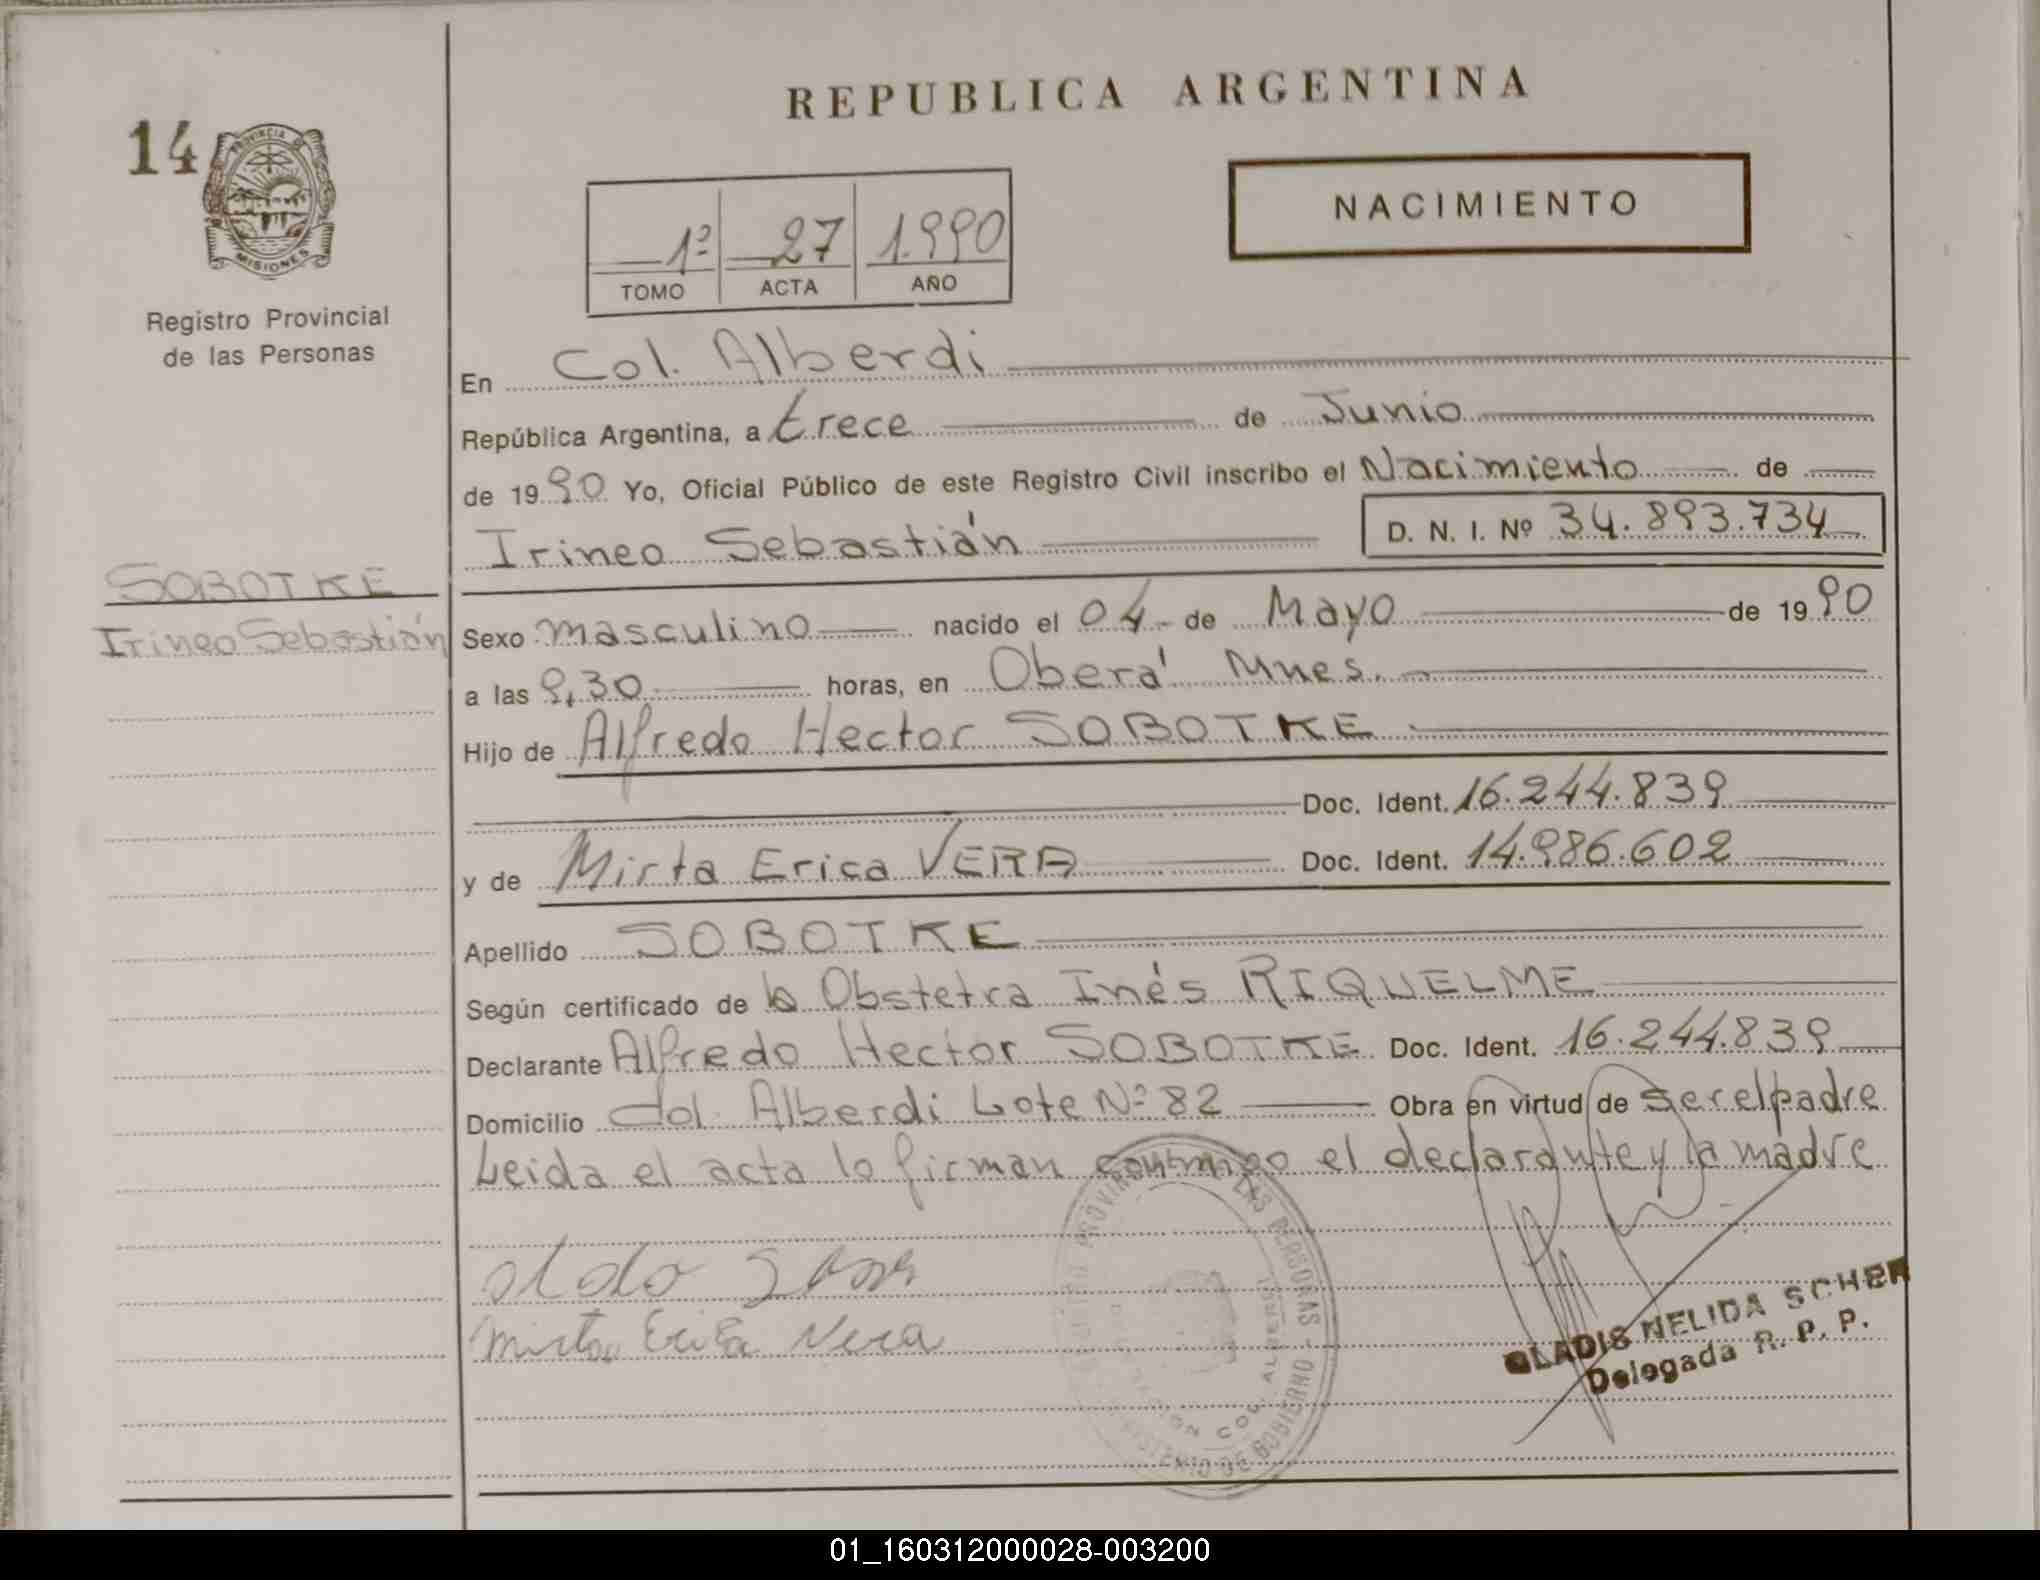 REPUBLICA ARGENTINA
14
PROVINCIA DE
MISIONES
Registro Provincial
de las Personas
NACIMIENTO
1º 27 1.990
TOMO ACTA AÑO
En Col. Alberdi
República Argentina, a trece de Junio
de 1990 Yo, Oficial Público de este Registro Civil inscribo el Nacimiento de
Irineo Sebastián D. N. I. Nº 34.893.734
SOBOTKE
Irineo Sebastián
Sexo masculino nacido el 04 de Mayo de 1990
a las 9,30 horas, en Oberá Mnes.
Hijo de Alfredo Hector SOBOTKE
Doc. Ident. 16.244.839
y de Mirta Erica VERA Doc. Ident. 14.986.602
Apellido SOBOTKE
Según certificado de la Obstetra Inés RIQUELME
Declarante Alfredo Hector SOBOTKE Doc. Ident. 16.244.839
Domicilio Col. Alberdi Lote Nº 82 Obra en virtud de ser el padre
Leida el acta lo firman conmigo el declarante y la madre
Mirta Erica Vera
LAS PERSONAS
COL. ALBERDI
DE GOBIERNO
GLADIS NELIDA SCHER
Delegada R. P. P.
01_160312000028-003200